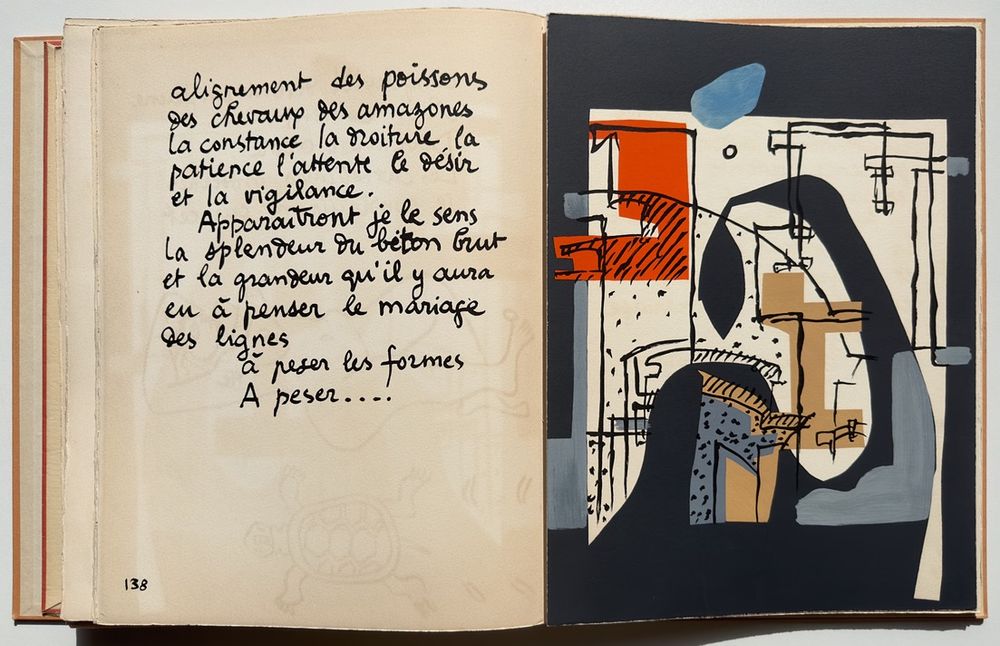 alignement des poissons
des chevaux des amazones
la constance la droiture la
patience l'attente le désir
et la vigilance.
Apparaîtront je le sens
la splendeur du béton brut
et la grandeur qu'il y aura
eu à penser le mariage
des lignes
à peser les formes
A peser....
138